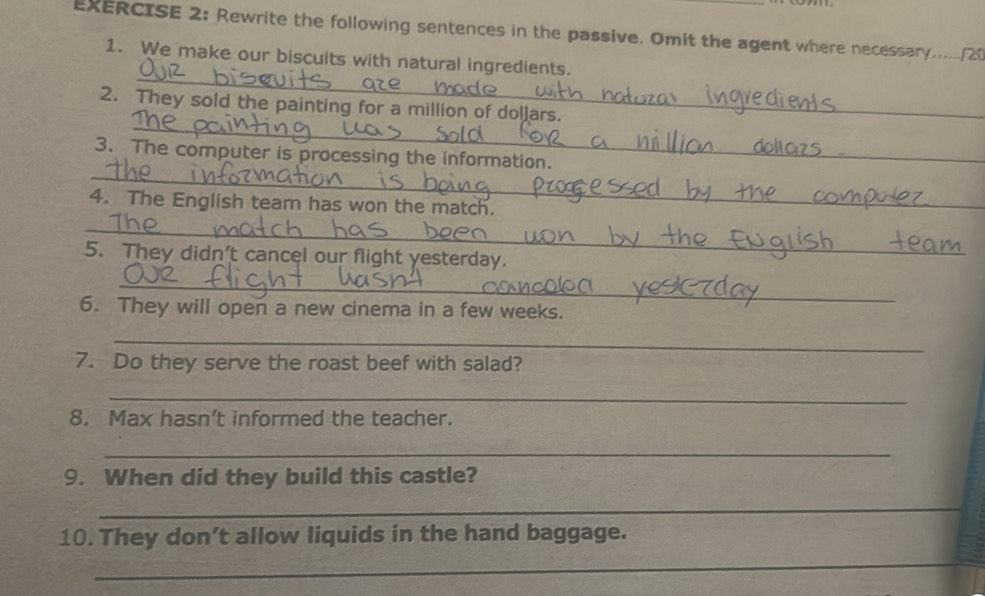 EXERCISE 2: Rewrite the following sentences in the passive. Omit the agent where necessary......./20
1. We make our biscuits with natural ingredients.
OUR biscuits are made with natural ingredients
2. They sold the painting for a million of dollars.
The painting was sold for a million dollars.
3. The computer is processing the information.
the information is being processed by the computer
4. The English team has won the match.
The match has been won by the English team
5. They didn't cancel our flight yesterday.
OUR flight wasn't canceled yesterday
6. They will open a new cinema in a few weeks.
7. Do they serve the roast beef with salad?
8. Max hasn't informed the teacher.
9. When did they build this castle?
10. They don't allow liquids in the hand baggage.